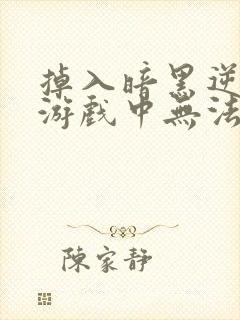 掉入暗黑逆
游戲中無法
陳家靜